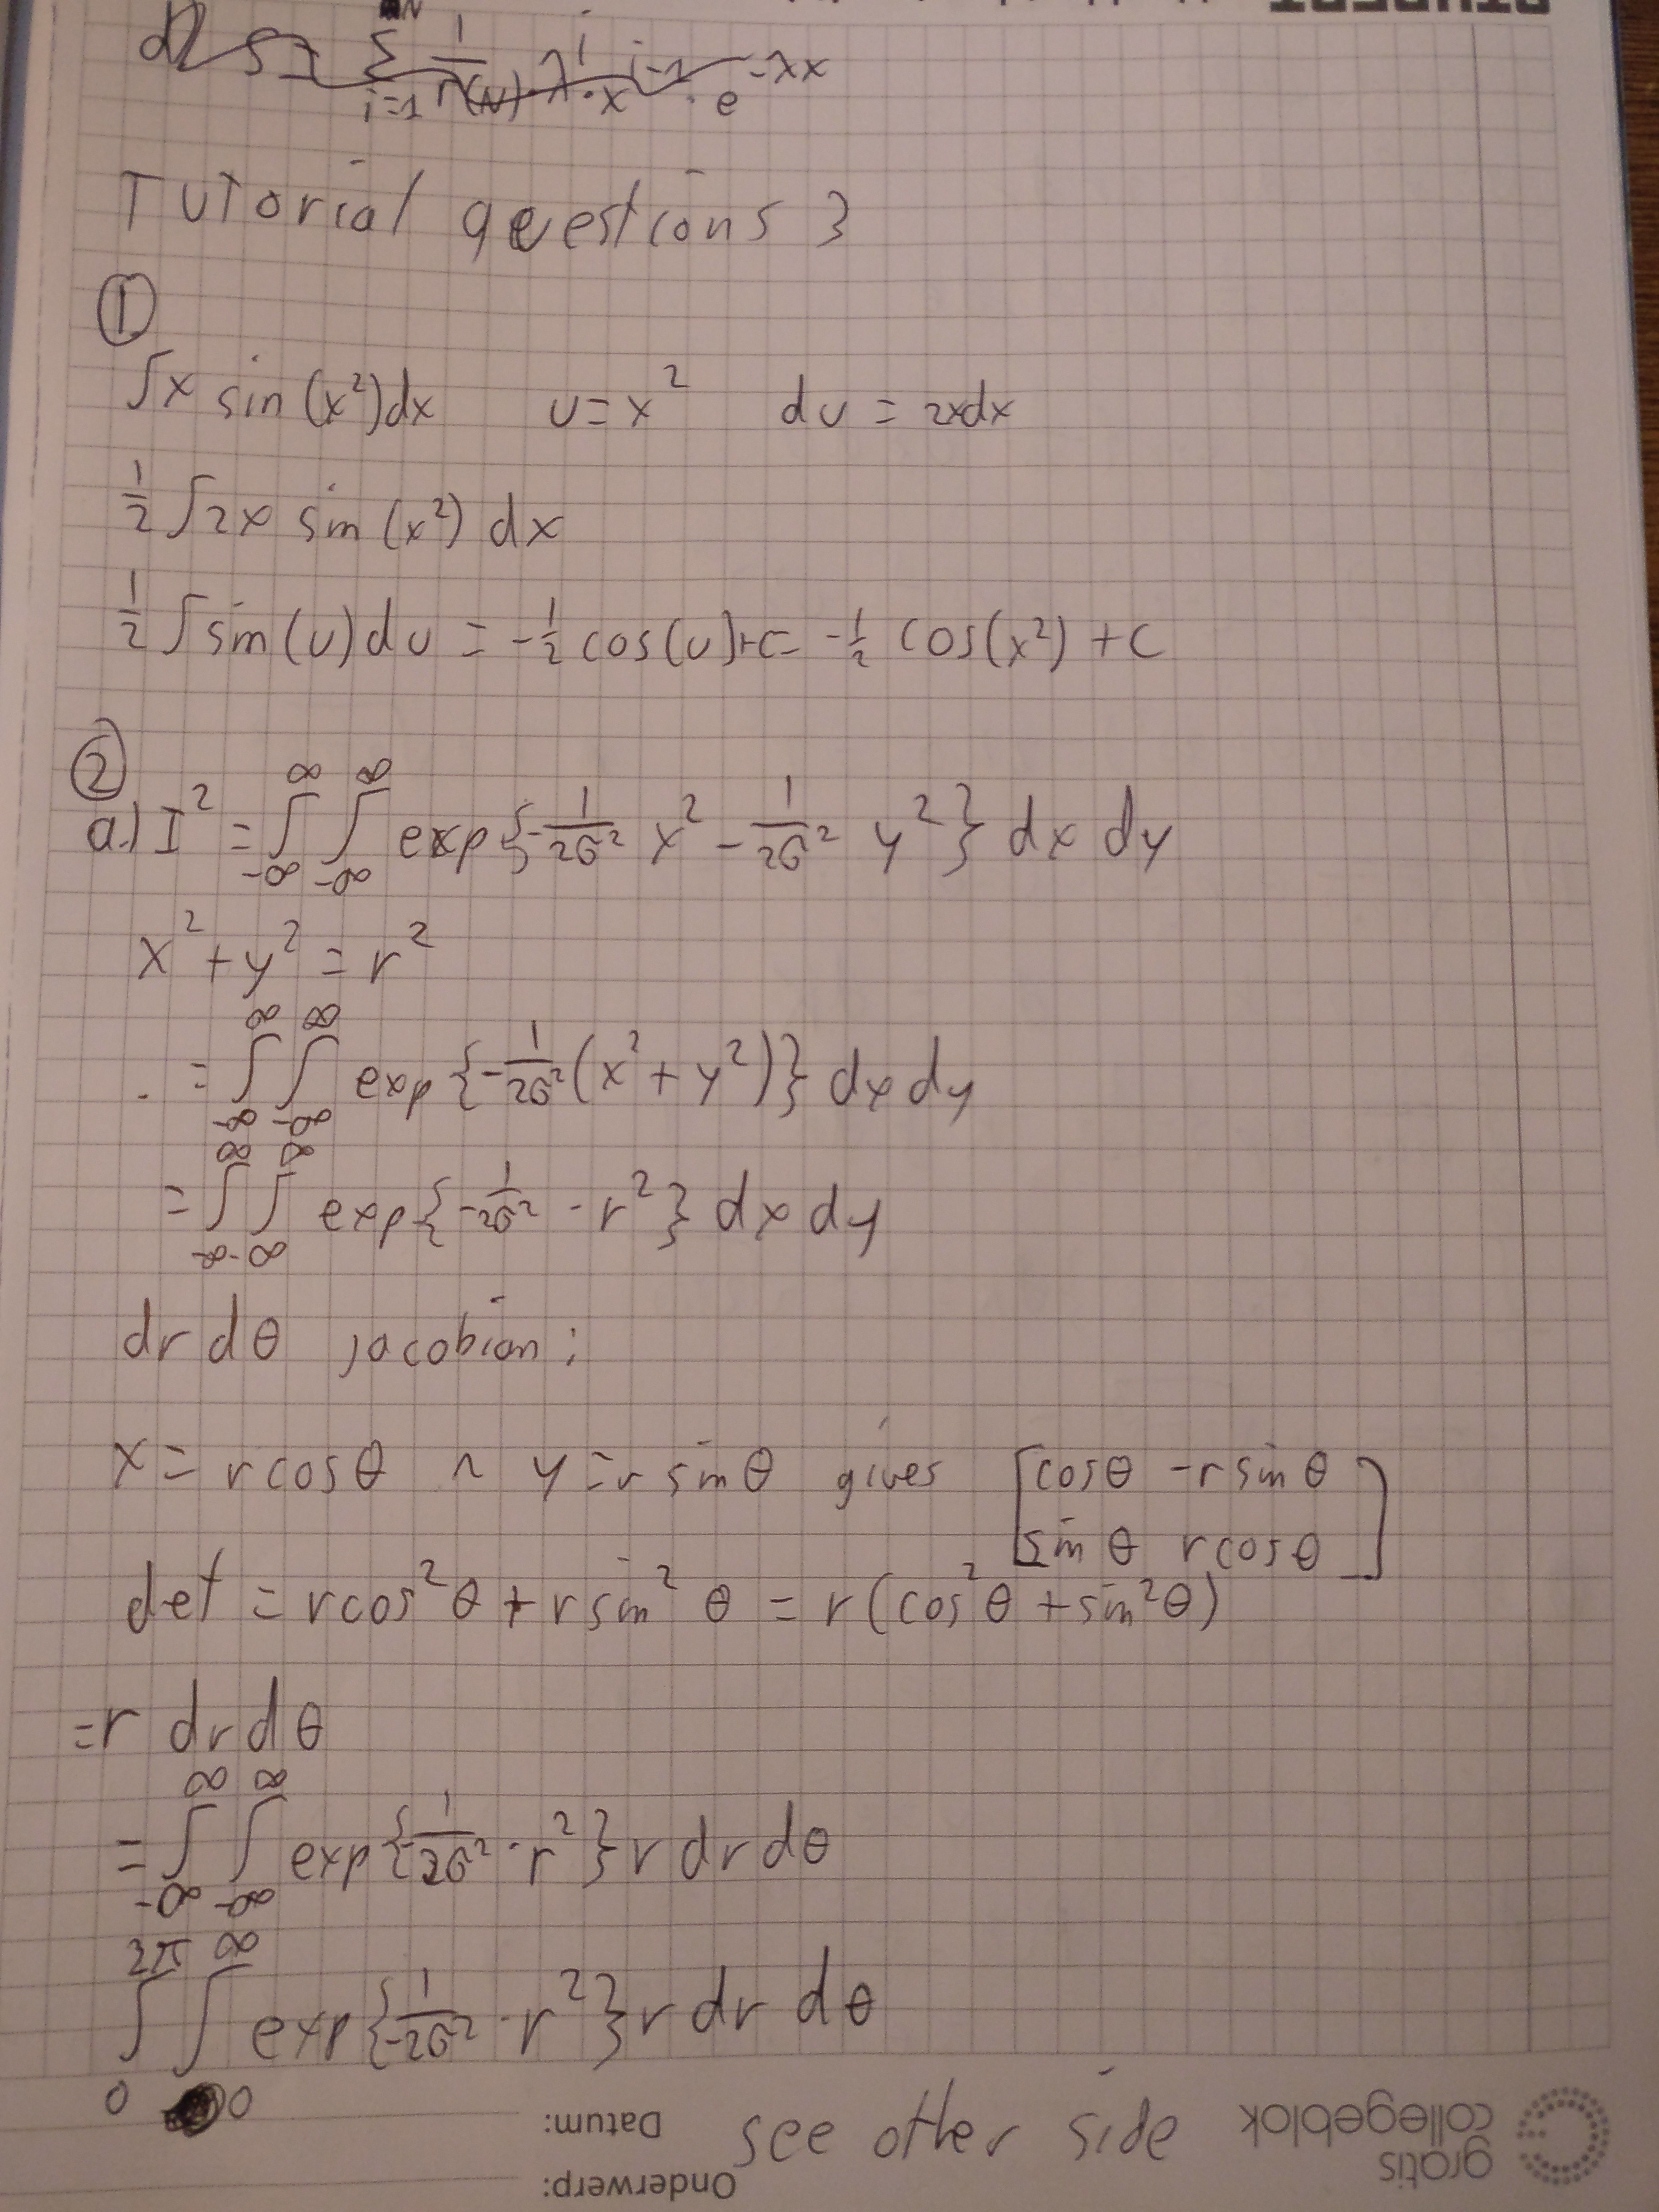 d) S = Σ_{i=1}^{N} 1/Γ(N) · λ^i · x^{i-1} · e^{-λx}
Tutorial questions 3
①
∫x sin(x²)dx u=x² du = 2xdx
½ ∫2x sin(x²) dx
½ ∫sin(u)du = -½ cos(u)+c = -½ cos(x²) +c
②
a.) I² = ∫_{-∞}^{∞} ∫_{-∞}^{∞} exp{-1/2σ² x² - 1/2σ² y²} dx dy
x² + y² = r²
= ∫_{-∞}^{∞} ∫_{-∞}^{∞} exp{-1/2σ²(x²+y²)} dx dy
= ∫_{-∞}^{∞} ∫_{-∞}^{∞} exp{-1/2σ² · r²} dx dy
dr dθ jacobian:
x = r cosθ ∧ y = r sin θ gives [cosθ -r sin θ
sin θ r cosθ]
det = r cos²θ + r sin² θ = r(cos²θ + sin²θ)
= r dr dθ
= ∫_{-∞}^{∞} ∫_{-∞}^{∞} exp{-1/2σ² · r²} r dr dθ
∫_{0}^{2π} ∫_{0}^{∞} exp{-1/2σ² · r²} r dr dθ
see other side
Datum:
Onderwerp:
gratis
collegeblok